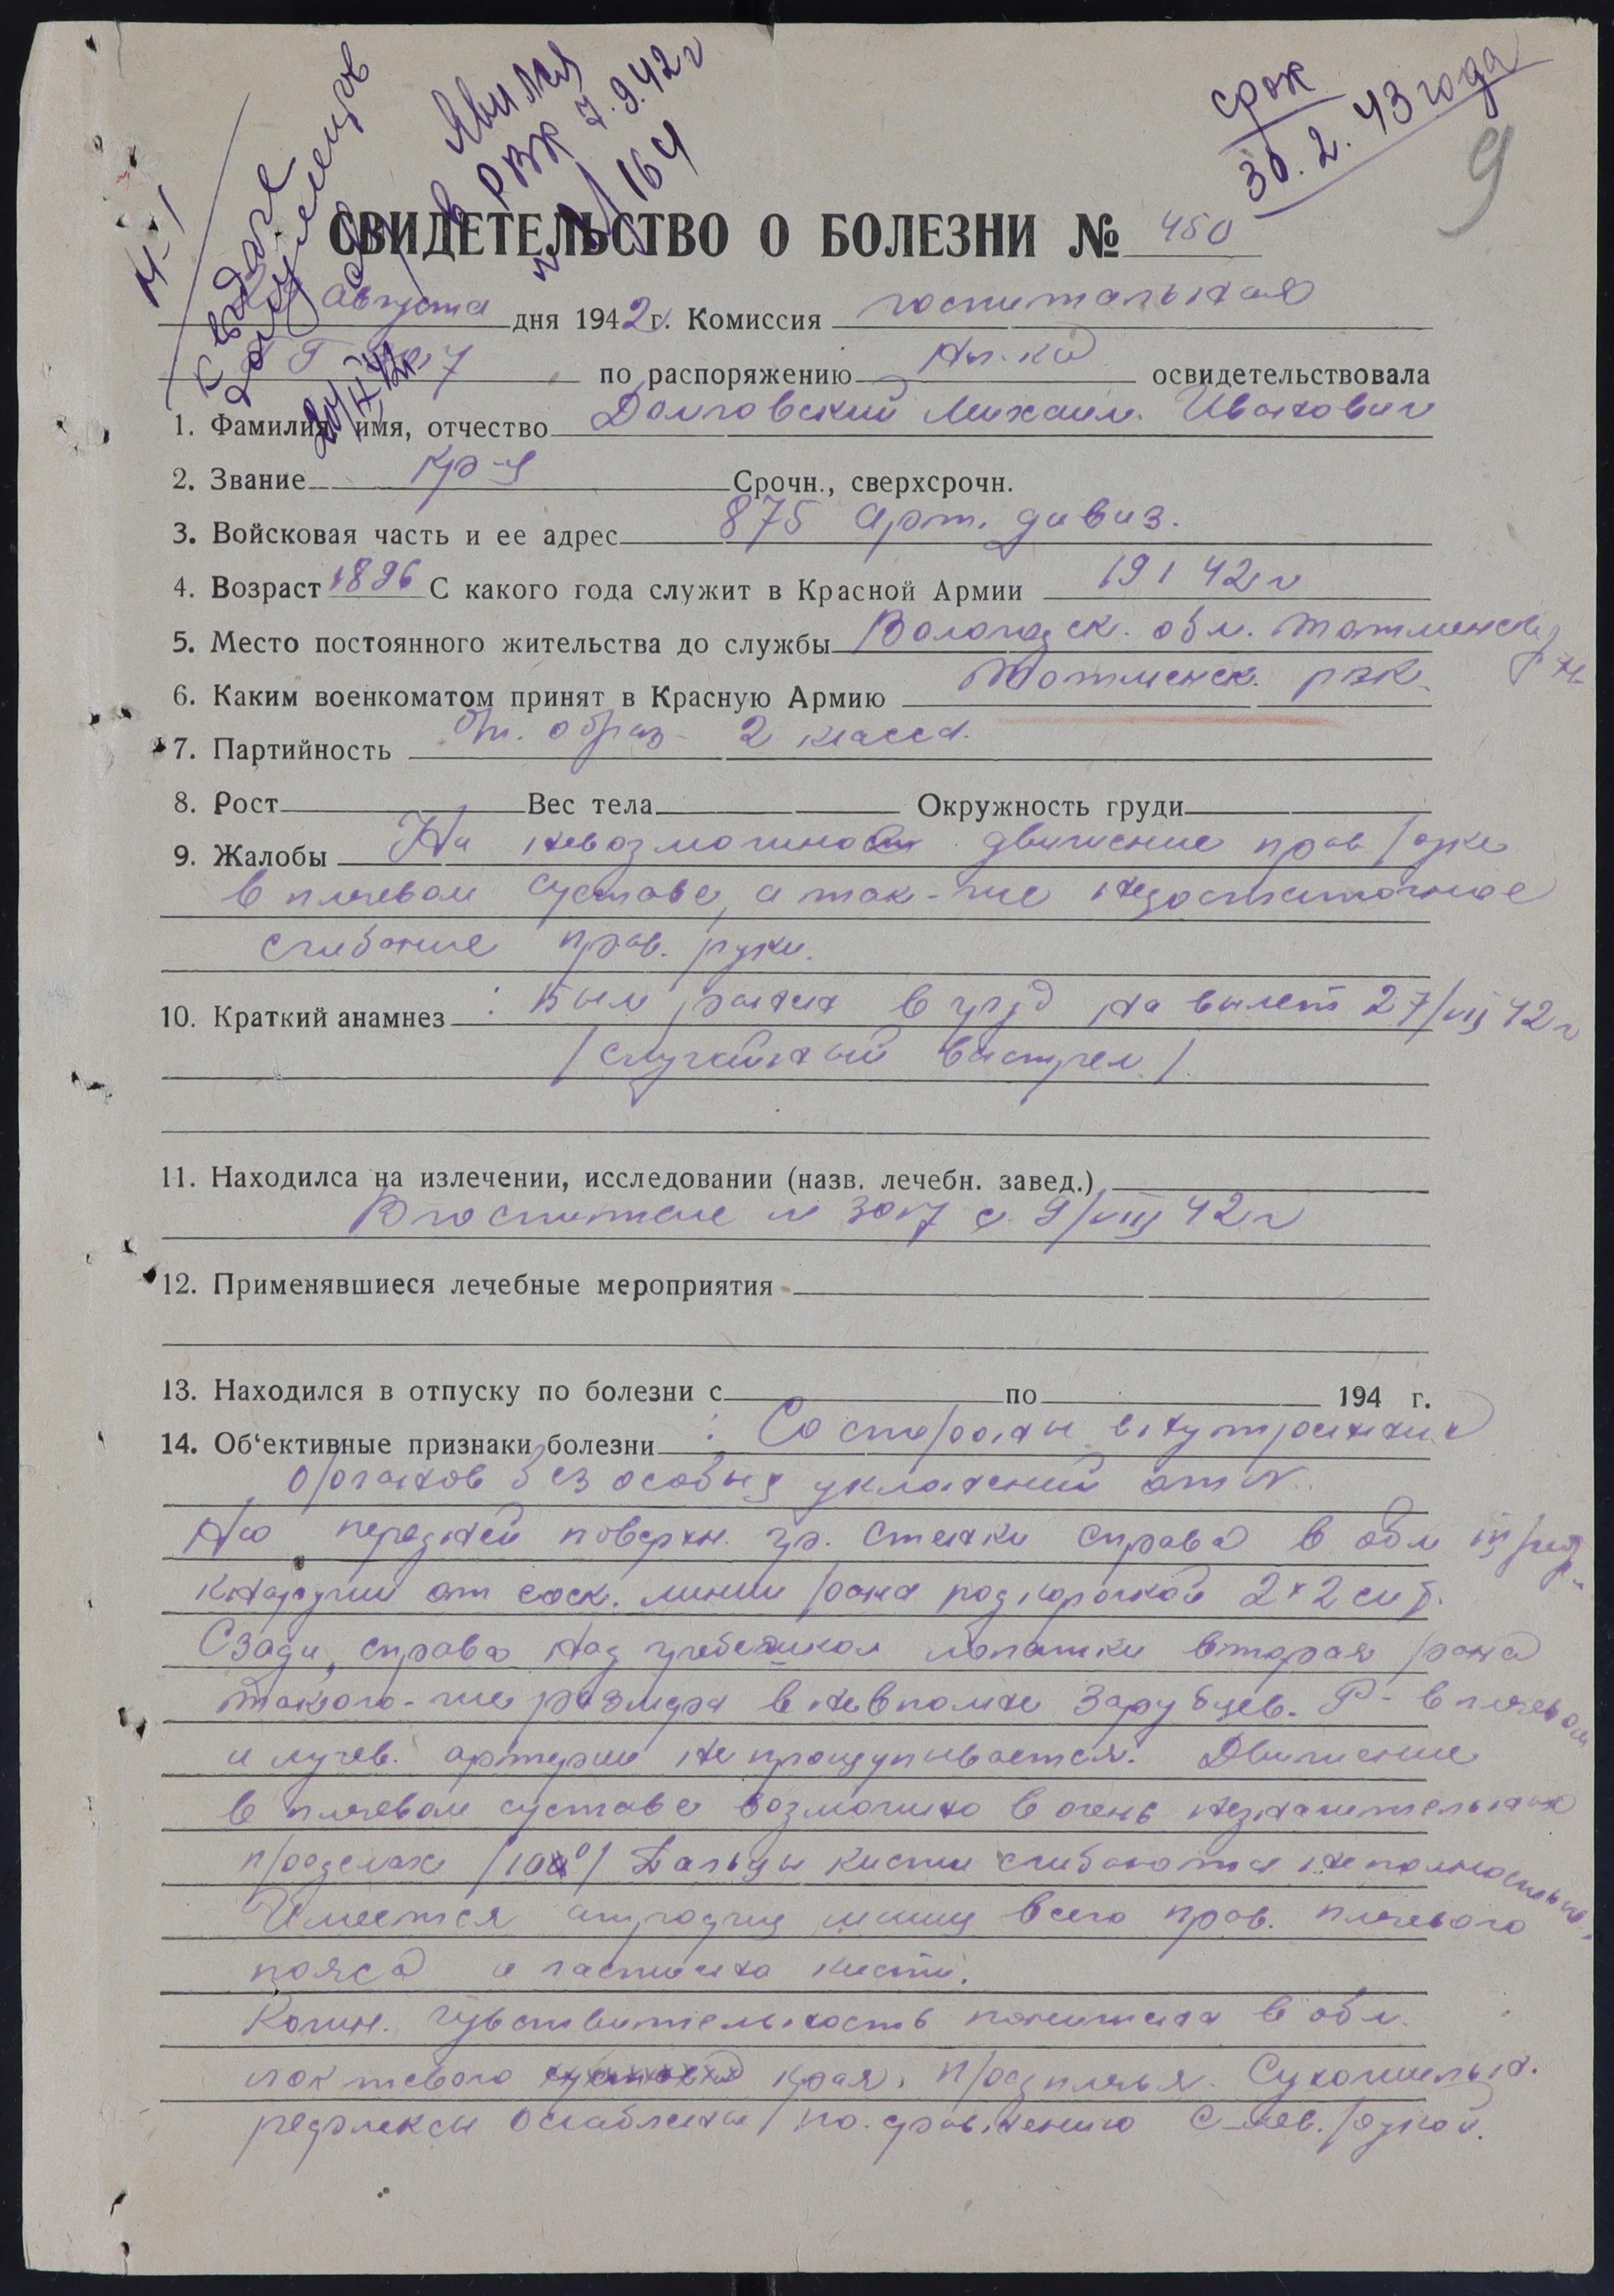 Явился
в РВК 7.9.42 г
к выдаче
документов
срок
30.2.43 года
9
СВИДЕТЕЛЬСТВО О БОЛЕЗНИ № 450
августа дня 1942 г. Комиссия госпитальная
по распоряжению нач-ка освидетельствовала
1. Фамилия, имя, отчество Долговский Михаил Иванович
2. Звание кр-ц Срочн., сверхсрочн.
3. Войсковая часть и ее адрес 875 арт. дивиз.
4. Возраст 1896 С какого года служит в Красной Армии 19 / 42 г
5. Место постоянного жительства до службы Вологодск. обл. Тотменск
р-н
6. Каким военкоматом принят в Красную Армию Тотменск. рвк.
7. Партийность б/п. образ- 2 класса.
8. Рост Вес тела Окружность груди
9. Жалобы На невозможность движение прав. руки
в плечевом суставе, а так-же недостаточное
сгибание прав. руки.
10. Краткий анамнез : Был ранен в груд на вылет 27/VII 42 г
/случайный выстрел./
11. Находилса на излечении, исследовании (назв. лечебн. завед.)
В госпитале № 3017 с 9/VIII 42 г
12. Применявшиеся лечебные мероприятия
13. Находился в отпуску по болезни с по 194 г.
14. Об‘ективные признаки болезни : Со стороны внутренних
органов без особых уклонений от N.
На передней поверхн. гр. стенки справа в обл III
кнаружи от соск. линии рана под корочкой 2×2 см
Сзади, справа над гребешком лопатки вторая рана
такого-же размера в невполне зарубцев. Р- в плечевой
и лучев. артерии не прощупывается. Движение
в плечевом суставе возможно в очень незначительных
пределах /100/ Пальцы кисти сгибаются неполностью.
Имеется атрофия мышц всего прав. плечевого
пояса и частично кисти.
Кожн. чувствительность понижена в обл.
локтевого края, предплечья. Сухожильн.
рефлексы ослаблены по сравнению с лев. рукой.